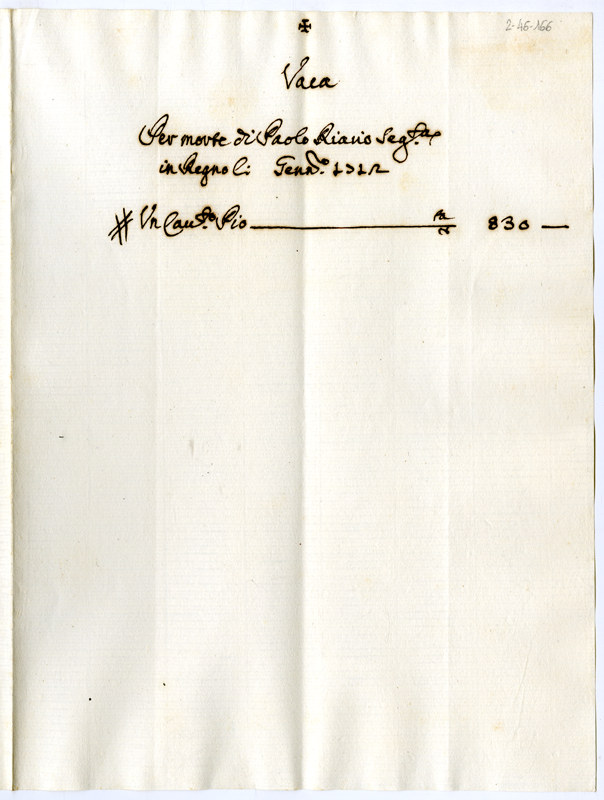 ✠
2-46-166
Vaca
Per morte di Paolo Riario Seg.ta
in Regno li Genn.o 1712
# Un Cau.to Pio 830 —